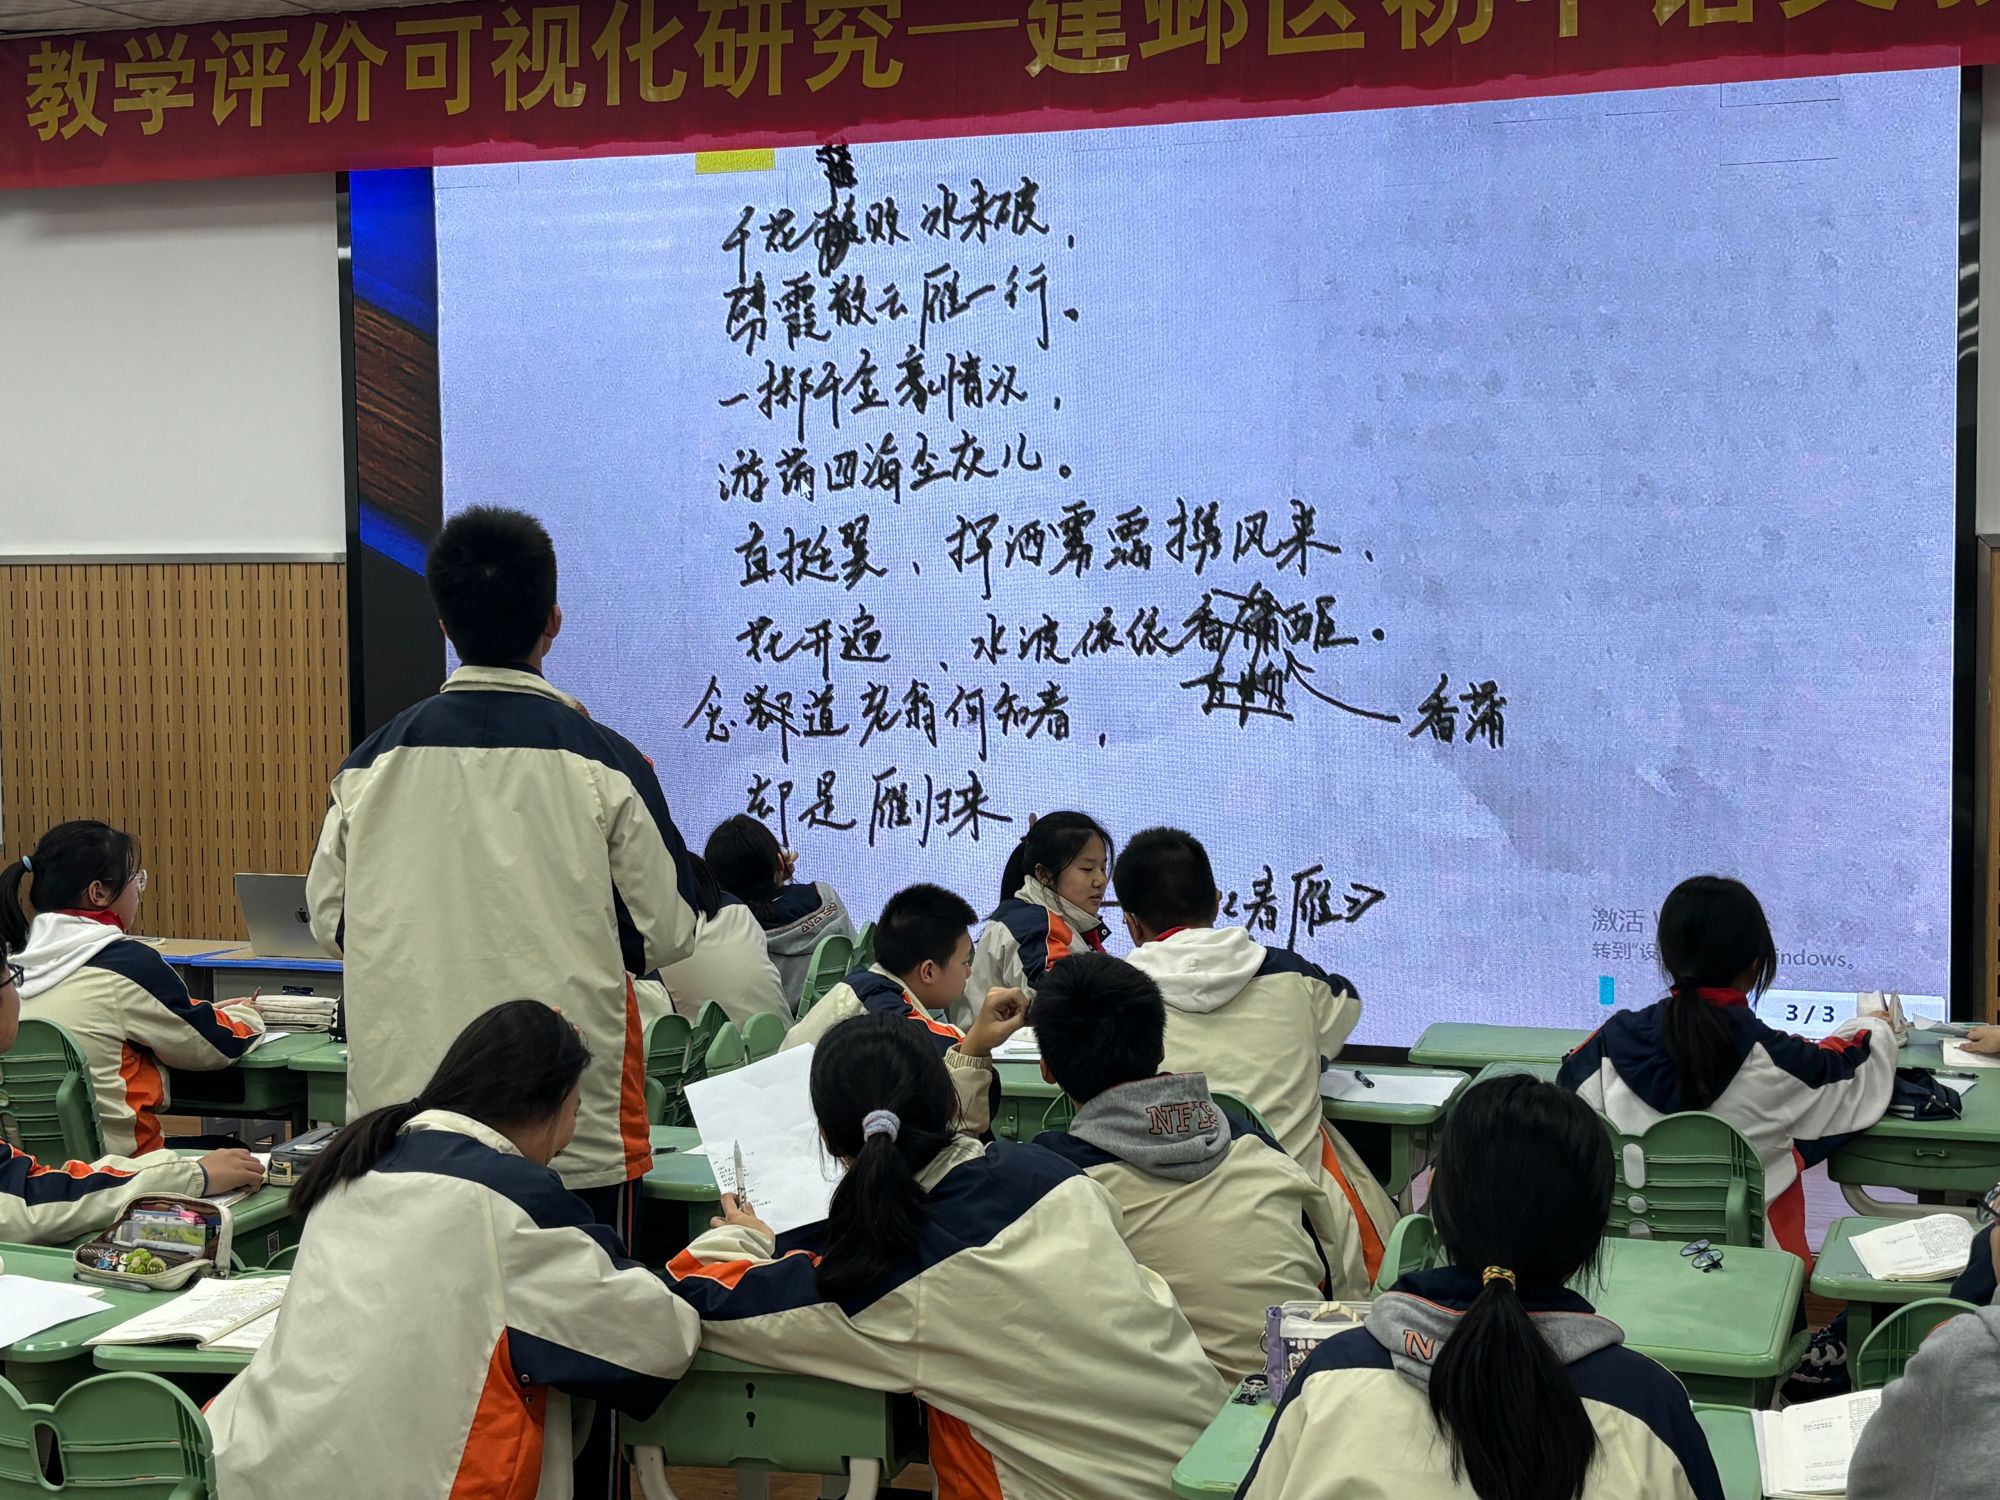 教学评价可视化研究—建邺区初中语文教
千花酸败冰未破，
劈霞散云雁一行。
一掷千金豪情况，
游荡四海尘灰儿。
直挺翼、挥洒雾露携风来、
花开遍、水波依依香蒲醒。
香蒲
念却道老翁何知春，
却是雁归来
《春雁》
激活
转到"设 indows。
3/3
NFLS
N